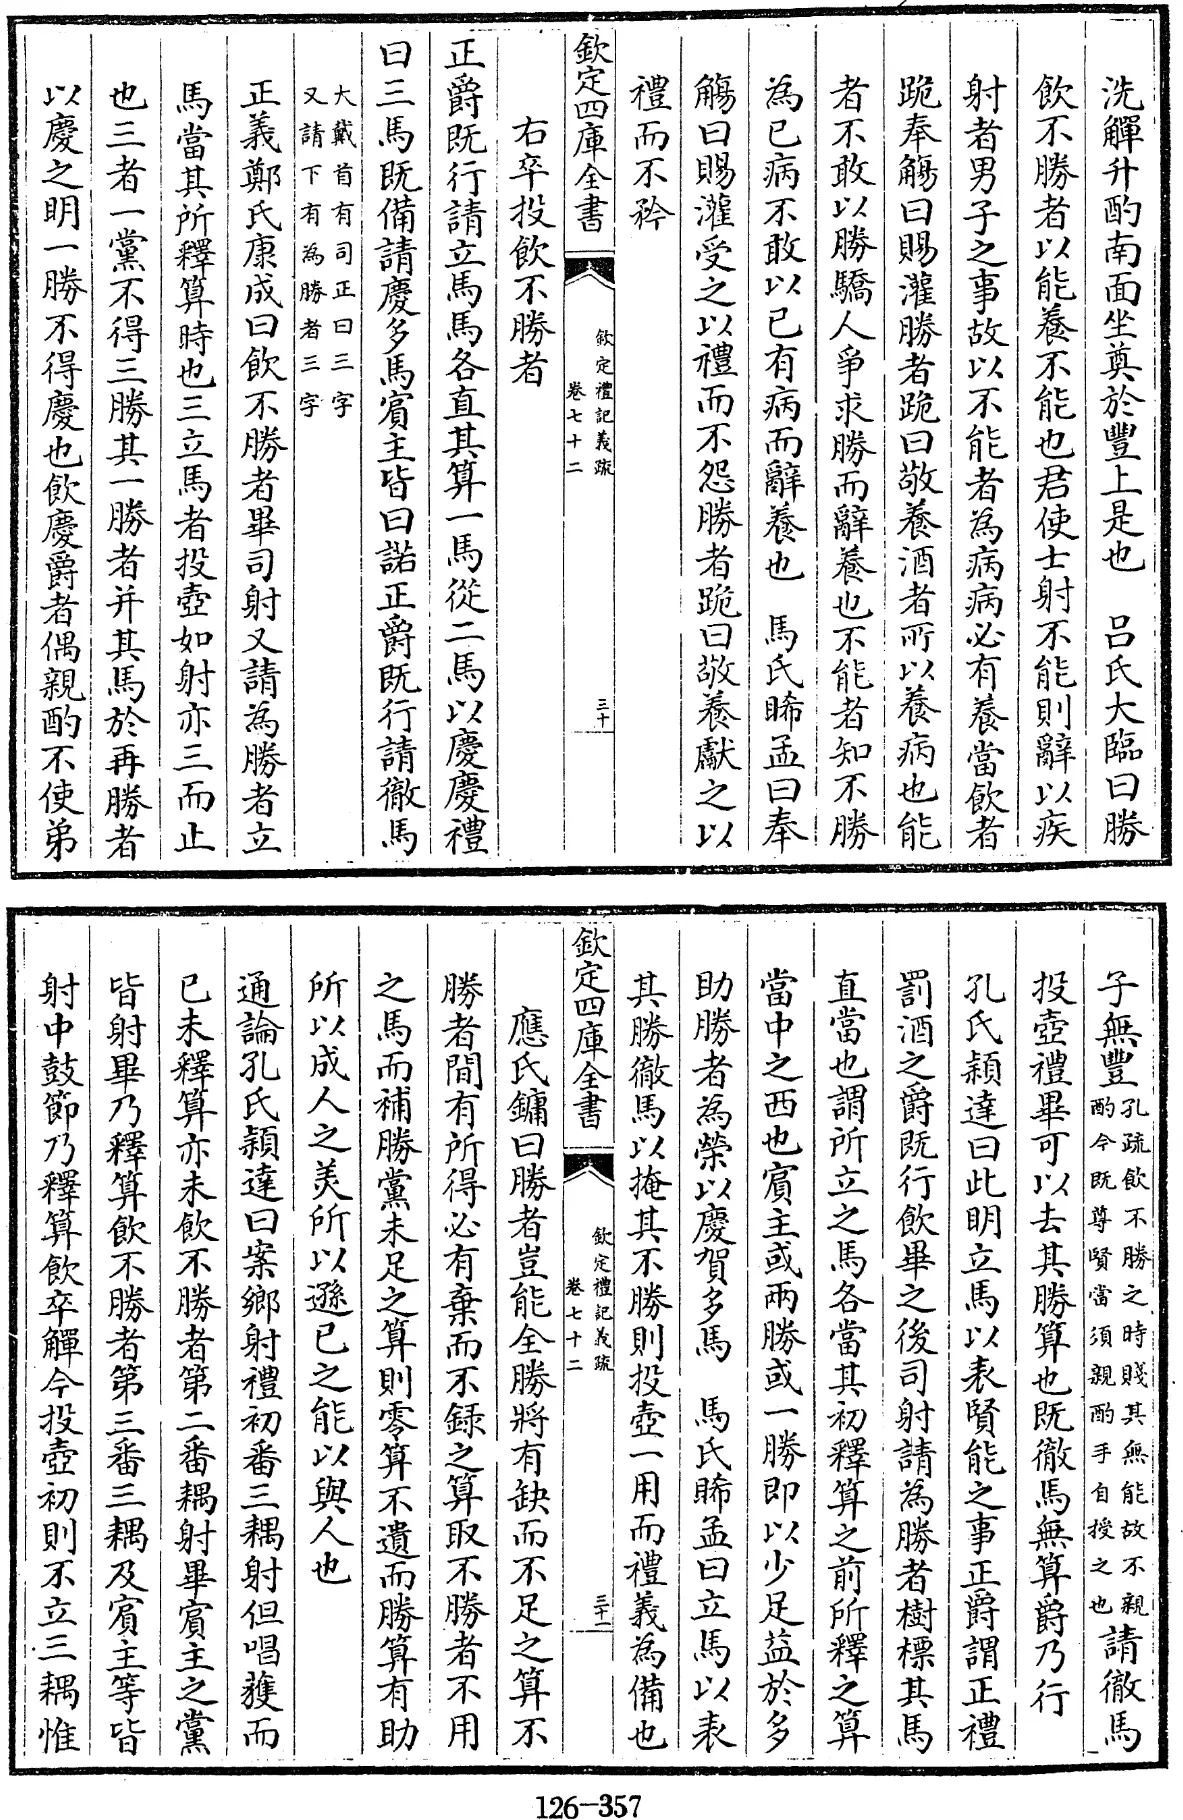 洗觶升酌南面坐奠於豐上是也　吕氏大臨曰勝
飲不勝者以能養不能也君使士射不能則辭以疾
射者男子之事故以不能者為病病必有養當飲者
跪奉觴曰賜灌勝者跪曰敬養酒者所以養病也能
者不敢以勝驕人爭求勝而辭養也不能者知不勝
為已病不敢以已有病而辭養也　馬氏睎孟曰奉
觴曰賜灌受之以禮而不怨勝者跪曰敬養獻之以
禮而不矜
欽定四庫全書
欽定禮記義疏
卷七十二
三十
右卒投飲不勝者
正爵既行請立馬馬各直其算一馬從二馬以慶慶禮
曰三馬既備請慶多馬賓主皆曰諾正爵既行請徹馬
大戴首有司正曰三字
又請下有為勝者三字
正義鄭氏康成曰飲不勝者畢司射又請為勝者立
馬當其所釋算時也三立馬者投壺如射亦三而止
也三者一黨不得三勝其一勝者并其馬於再勝者
以慶之明一勝不得慶也飲慶爵者偶親酌不使弟
子無豐
孔疏飲不勝之時賤其無能故不親
酌今既尊賢當須親酌手自授之也
請徹馬
投壺禮畢可以去其勝算也既徹馬無算爵乃行
孔氏穎達曰此明立馬以表賢能之事正爵謂正禮
罰酒之爵既行飲畢之後司射請為勝者樹標其馬
直當也謂所立之馬各當其初釋算之前所釋之算
當中之西也賓主或兩勝或一勝即以少足益於多
助勝者為榮以慶賀多馬　馬氏睎孟曰立馬以表
其勝徹馬以掩其不勝則投壺一用而禮義為備也
欽定四庫全書
欽定禮記義疏
卷七十二
三十一
應氏鏞曰勝者豈能全勝將有缺而不足之算不
勝者間有所得必有棄而不録之算取不勝者不用
之馬而補勝黨未足之算則零算不遺而勝算有助
所以成人之美所以遜已之能以與人也
通論孔氏穎達曰案鄉射禮初番三耦射但唱獲而
已未釋算亦未飲不勝者第二番耦射畢賓主之黨
皆射畢乃釋算飲不勝者第三番三耦及賓主等皆
射中鼓節乃釋算飲卒觶今投壺初則不立三耦惟
126-357